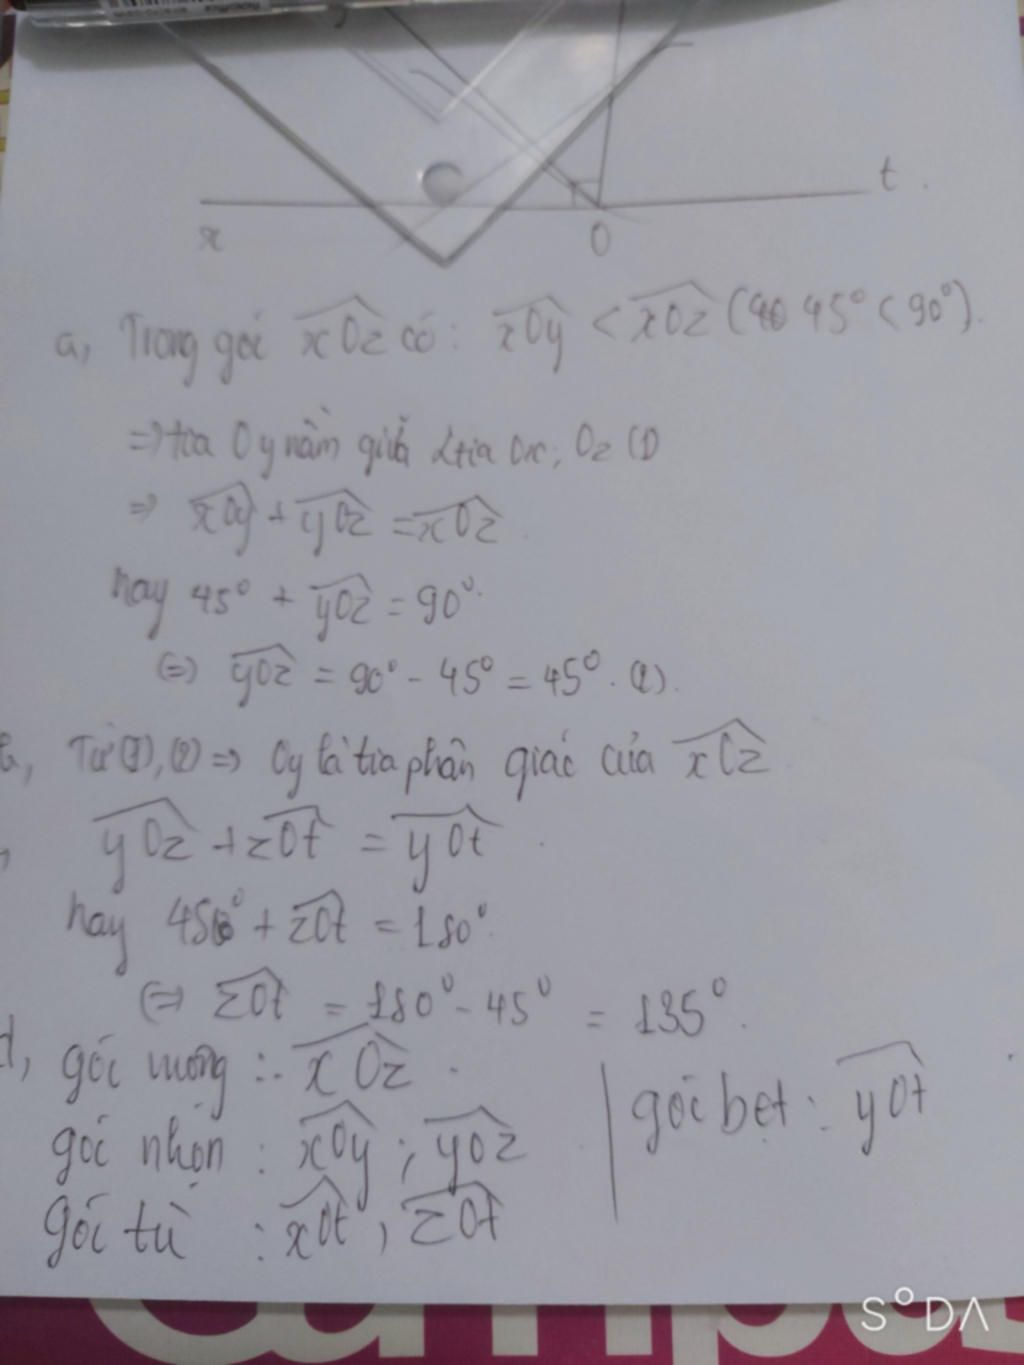 t.
x
O
a, Trong góc xOz có: xOy < xOz (45° < 90°).
=> tia Oy nằm giữa 2 tia Ox, Oz (1)
=> xOy + yOz = xOz.
hay 45° + yOz = 90°.
(=) yOz = 90° - 45° = 45°. (2).
b, Từ (1), (2) => Oy là tia phân giác của xOz
yOz + zOt = yOt.
hay 45° + zOt = 180°.
(=> zOt = 180° - 45° = 135°.
d, góc vuông : xOz.
góc bẹt : yOt
góc nhọn : xOy ; yOz
góc tù : xOt, zOt
SODA